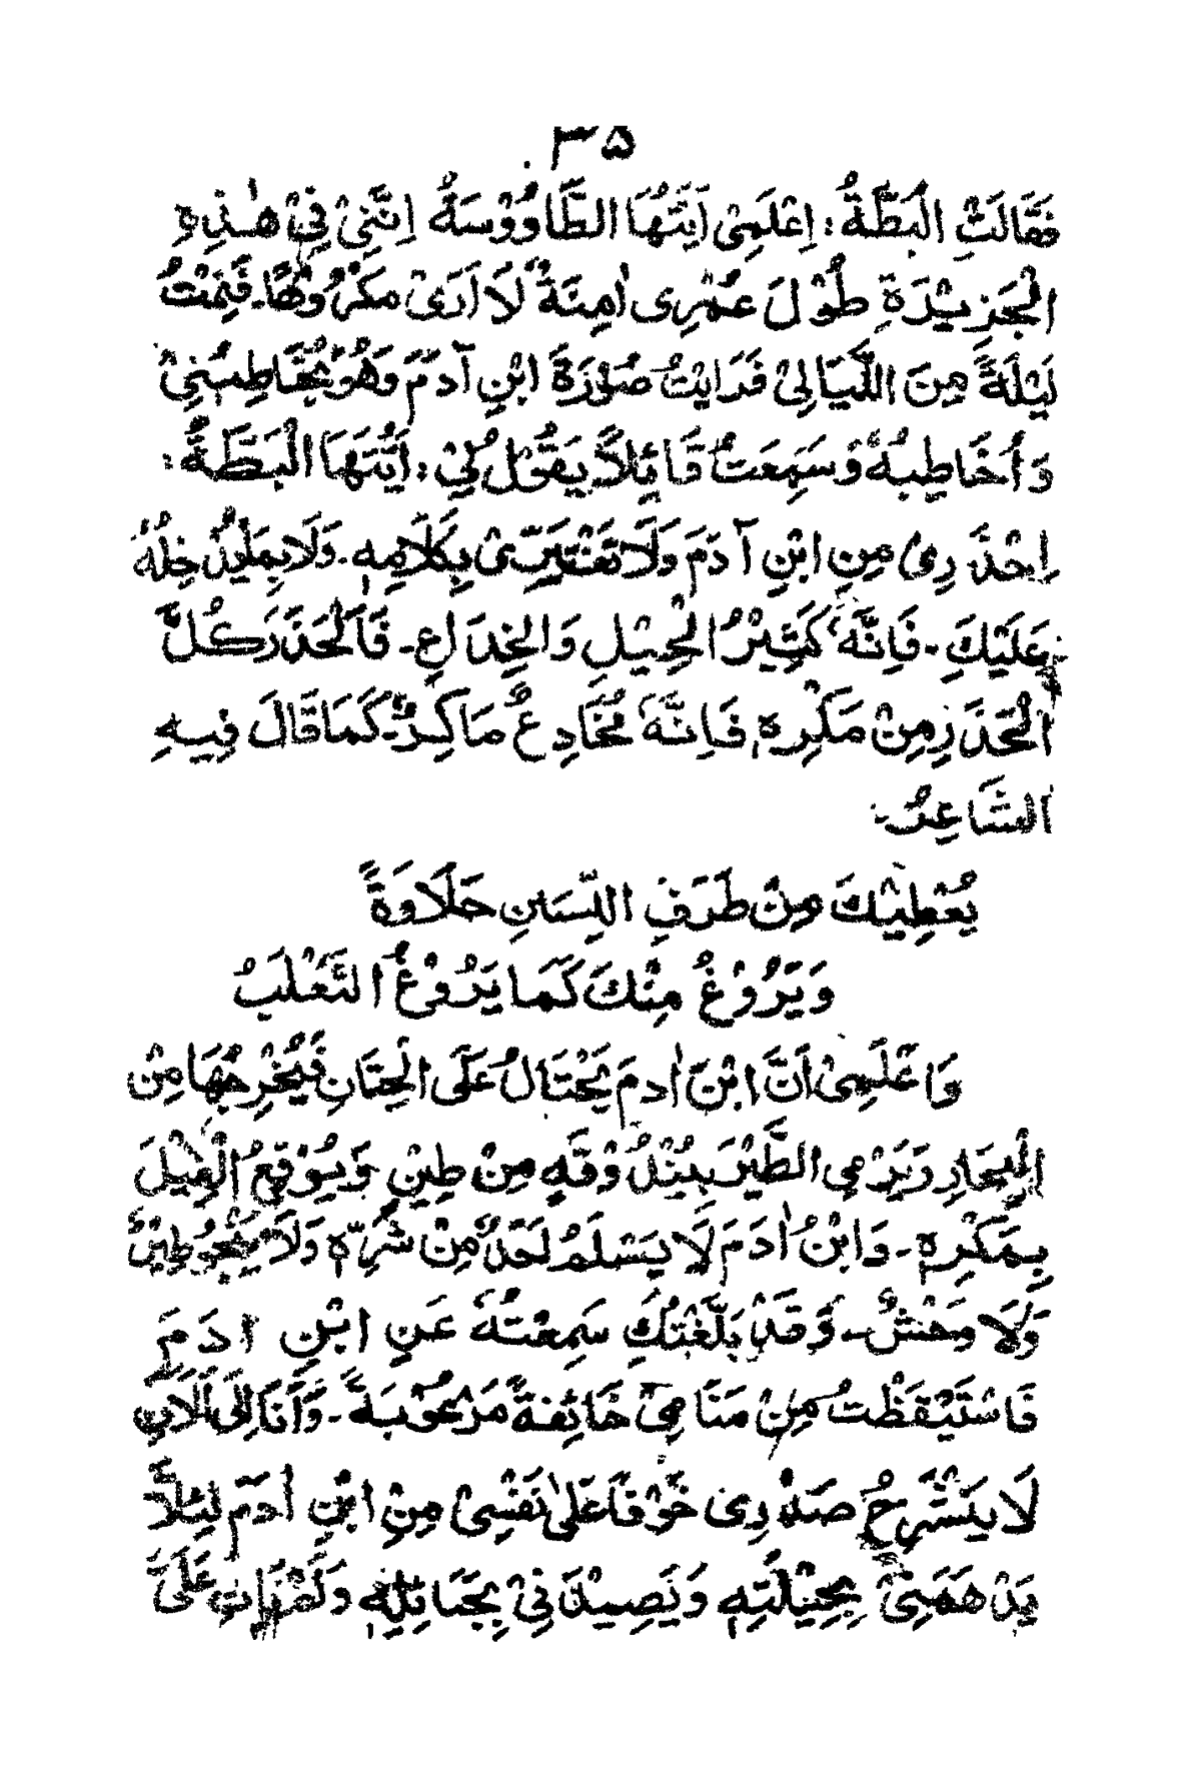 ٣٥
فَقَالَتْ الْبَطَّةُ: اِعْلَمِىْ اَيَّتُهَا الطَّاوُوْسَةُ اِنَّنِىْ فِىْ هٰذِهِ
الْجَزِيْرَةِ طُوْلَ عُمْرِى اٰمِنَةٌ لَا اَرَىْ مَكْرُوْهًا۔ فَنِمْتُ
لَيْلَةً مِنَ اللَّيَالِىْ فَرَايْتُ صُوْرَةَ ابْنِ آدَمَ وَهُوَ يُخَاطِبُنِىْ
وَاُخَاطِبُهٗ وَسَمِعَتُ قَائِلًا يَقُوْلُ لِىْ: اَيَّتُهَا الْبَطَّةُ:
اِحْذَرِىْ مِنِ ابْنِ آدَمَ وَلَا تَغْتَرِّىْ بِكَلَامِهٖ۔ وَلَا بِمَا
عَلَيْكَ۔ فَاِنَّهٗ كَثِيْرُ الْحِيَلِ وَالْخِدَاعِ۔ فَالْحَذَرَ كُلَّ
الْحَذَرِ مِنْ مَكْرِهٖ فَاِنَّهٗ مُخَادِعٌ مَاكِرٌ۔ كَمَا قَالَ فِيهِ
الشَّاعِرُ۔
يُعْطِيْكَ مِنْ طَرَفِ اللِّسَانِ حَلَاوَةً
وَيَرُوْغُ مِنْكَ كَمَا يَرُوْغُ الثَّعْلَبُ
وَاعْلَمِىْ اَنَّ ابْنَ اٰدمَ يَحْتَالُ عَلَى الْحِتَانِ فَيُخْرِجُهَا مِنْ
الْبِحَارِ وَيَرْمِى الطَّيْرَ بِبُنْدُوْقَةٍ مِنْ طِيْنٍ وَيُوْقِعُ الْفِيْلَ
بِمَكْرِهٖ۔ وَابْنُ اٰدَمَ لَا يَسْلَمُ اَحَدٌ مِنْ شَرِّهٖ وَلَا يَنْجُوْ طَيْرٌ
وَلَا وَحْشٌ۔ وَقَدْ بَلَّغْتُكِ سَمِعْتُهٗ عَنِ ابْنِ ادَمَ
فَاسْتَيْقَظْتُ مِنْ مَنَامِىْ خَائِفَةً مَرْعُوْبَةً۔ وَّاَنَا اِلَى الْاٰنِ
لَا يَنْشَرِحُ صَدْرِى خَوْفًا عَلىٰ نَفْسِىْ مِنِ ابْنِ اٰدَمَ لِئَلَّا
يَدْهَمَنِىْ بِحِيْلَتِهٖ وَيَصِيْدَنِىْ بِحَبَائِلِهٖ وَلَمْ يَاْتِ عَلَىَّ